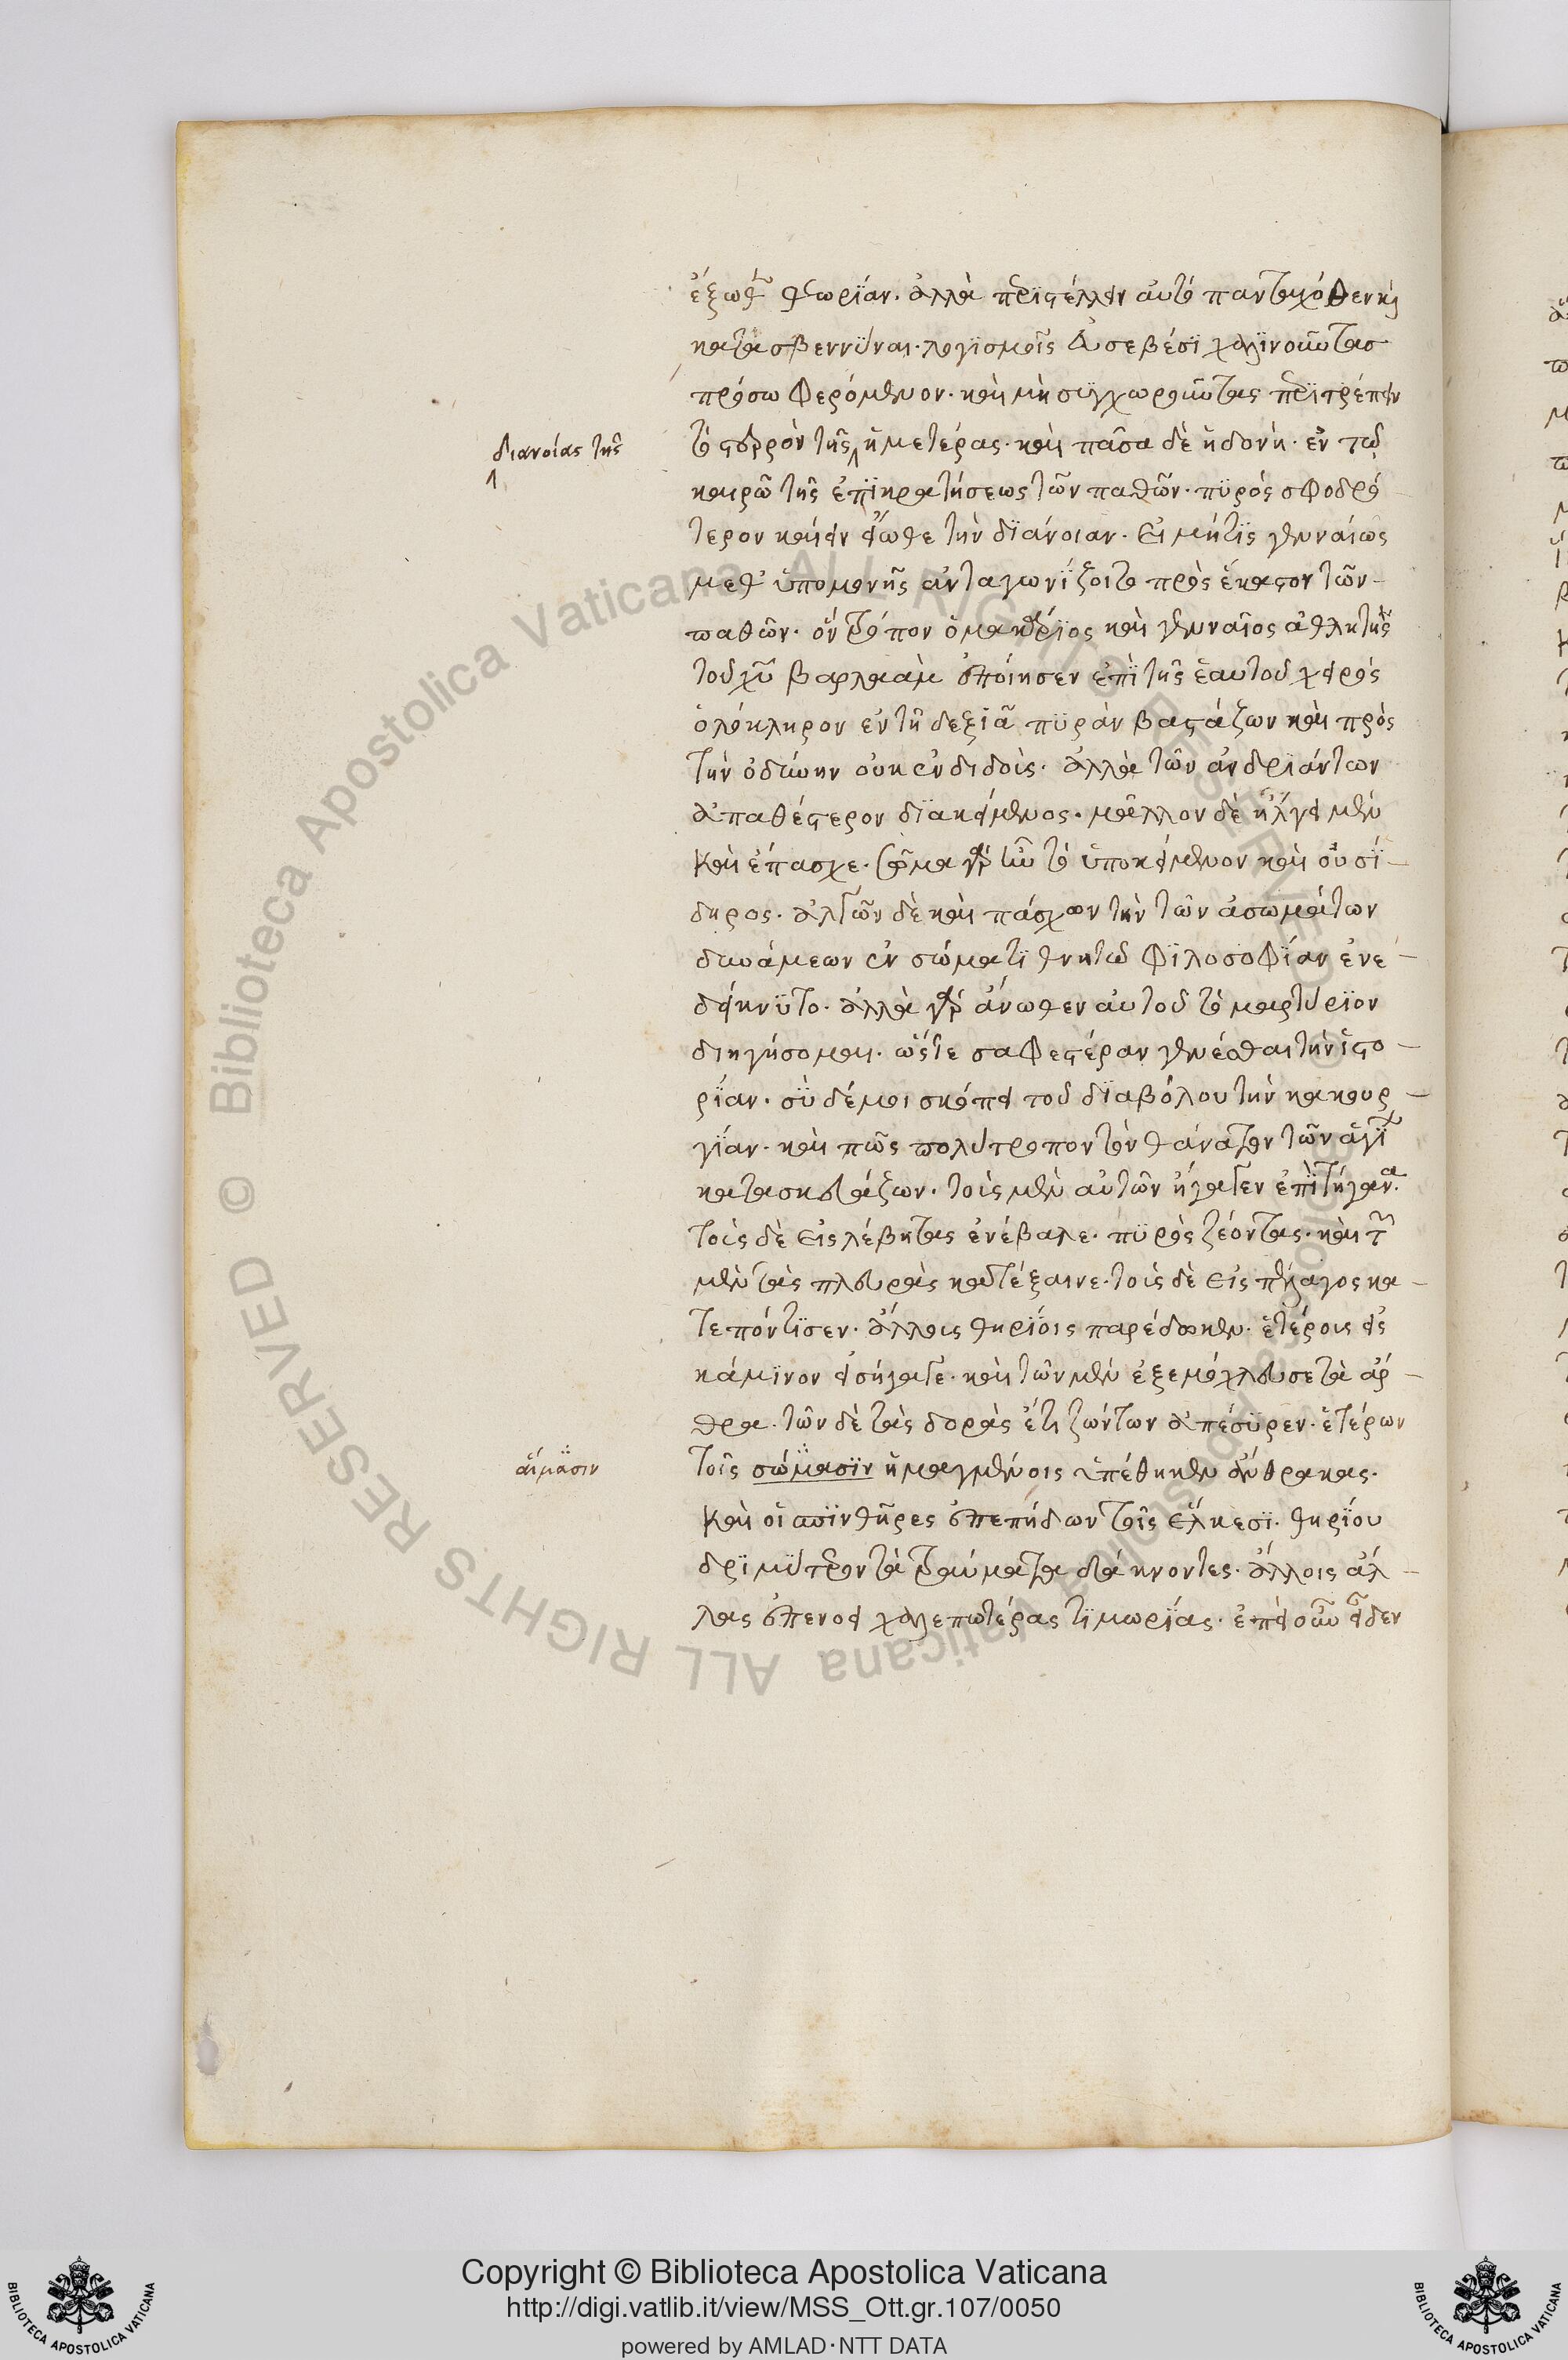 ἔξωθ θεωρίαν. ἀλλὰ περιστέλλειν αὐτὸ πανταχόθεν καὶ
κατασβεννύναι. λογισμοῖς εὐσεβέσι χαλινοῦντας
πρόσω φερόμενον. καὶ μὴ συγχωροῦντας περιτρέπειν
διανοίας τῆς
τὸ στερρὸν τῆς ἡμετέρας. καὶ πᾶσα δὲ ἡδονὴ. ἐν τῷ
καιρῷ τῆς ἐπικρατήσεως τῶν παθῶν. πυρὸς σφοδρό
τερον καίειν εἴωθε τὴν διάνοιαν. εἰ μήτις γενναίως
μεθ' ὑπομονῆς ἀνταγωνίζοιτο πρὸς ἕκαστον τῶν
παθῶν. ὃν τρόπον ὁ μακάριος καὶ γενναῖος ἀθλητὴς
τοῦ χυ βαρλαὰμ ἐποίησεν ἐπὶ τῆς ἑαυτοῦ χειρός
ὁλόκληρον ἐν τῇ δεξιᾷ πυρὰν βαστάζων καὶ πρὸς
τὴν ὀδύνην οὐκ ἐνδιδούς. ἀλλὰ τῶν ἀνδριάντων
ἀπαθέστερον διακείμενος. μᾶλλον δὲ ἤλγει μὲν
καὶ ἔπασχε. σῶμα γὰρ ἦν τὸ ὑποκείμενον καὶ οὐ σί
δηρος. ἀλγῶν δὲ καὶ πάσχων τὴν τῶν ἀσωμάτων
δυνάμεων ἐν σώματι θνητῷ φιλοσοφίαν ἐνε
δείκνυτο. ἀλλὰ γὰρ ἄνωθεν αὐτοῦ τὸ μαρτύριον
διηγήσομαι. ὥστε σαφεστέραν γενέσθαι τὴν ἱστο
ρίαν. σὺ δέ μοι σκόπει τοῦ διαβόλου τὴν κακουρ
γίαν. καὶ πῶς πολύτροπον τὸν θάνατον τῶν ἁγί
κατασκευάζων. τοὺς μὲν αὐτῶν ἤγαγεν ἐπὶ τήγανα.
τοὺς δὲ εἰς λέβητας ἐνέβαλε. πυρὸς ζέοντας. καὶ τ
μὲν τὰς πλευρὰς κατέξαινε. τοὺς δὲ εἰς πέλαγος κα
τεπόντισεν. ἄλλους θηρίοις παρέδωκεν. ἑτέρους εἰς
κάμινον εἰσήγαγε. καὶ τῶν μὲν ἐξεμόχλευσε τὰ ἄρ
θρα. τῶν δὲ τὰς δορὰς ἔτι ζώντων ἀπέσυρεν. ἑτέρων
αἵμασιν
τοῖς σώμασιν ἡμαγμένοις ἐπέθηκεν ἄνθρακας.
καὶ οἱ σπινθῆρες ἐπεπήδων τοῖς ἕλκεσι. θηρίου
δριμύτερον τὰ τραύματα δάκνοντες. ἄλλοις ἄλ
λας ἐπενόει χαλεπωτέρας τιμωρίας. ἐπεὶ οὖν εἶδεν
Copyright © Biblioteca Apostolica Vaticana
http://digi.vatlib.it/view/MSS_Ott.gr.107/0050
powered by AMLAD·NTT DATA